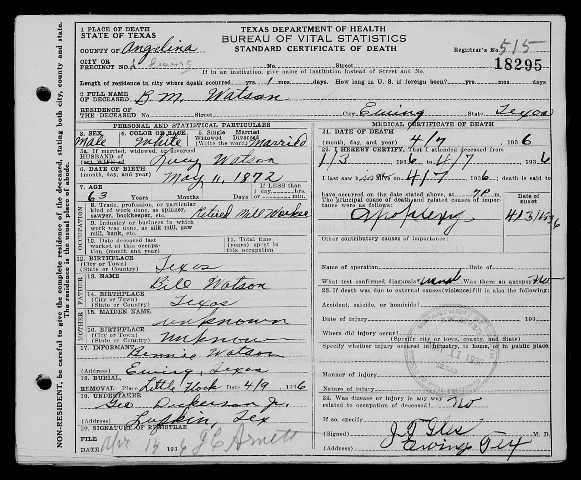 1 PLACE OF DEATH
STATE OF TEXAS
TEXAS DEPARTMENT OF HEALTH
BUREAU OF VITAL STATISTICS
STANDARD CERTIFICATE OF DEATH
COUNTY OF Angelina
Registrar's No. 515
CITY OR
PRECINCT NO. Ewing No. Street
18295
If in an institution, give name of institution instead of Street and No.
Length of residence in city where death occurred yrs. 1 mos. days. How long in U. S. if foreign born? yrs. mos. days
2 FULL NAME
OF DECEASED B. M. Watson
RESIDENCE OF
THE DECEASED No. Street Ewing Texas
PERSONAL AND STATISTICAL PARTICULARS
3. SEX Male
4. COLOR OR RACE White
5. Single Married
Widowed Divorced
(Write the word) Married
5a. If married, widowed,
HUSBAND OF
Watson
6. DATE OF BIRTH
(month, day, and year) May 11, 1872
7. AGE
63 Years Months Days
If LESS than
OCCUPATION
8. Trade, profession, or particular
kind of work done, as spinner,
sawyer, bookkeeper, etc. Retired Mill Worker
9. Industry or business in which
work was done, as silk mill, saw
mill, bank, etc.
10. Date deceased last
worked at this occupa-
tion (month and year)
11. Total time
(years) spent in
this occupation
12. BIRTHPLACE
(City or Town)
(State or Country) Texas
FATHER
13. NAME Bill Watson
14. BIRTHPLACE
(City or Town)
(State or Country) Texas
MOTHER
15. MAIDEN NAME unknown
16. BIRTHPLACE
(City or Town)
(State or Country) unknown
17. INFORMANT Bennie Watson
(Address) Ewing, Texas
18. BURIAL,
REMOVAL Place Little Flock Date 4/9 1936
19. UNDERTAKER Geo Dickerson Jr.
(Address) Lufkin, Tex
20. SIGNATURE OF REGISTRAR
FILE
DATE Apr 13 1936 J C Arnett
MEDICAL CERTIFICATE OF DEATH
21. DATE OF DEATH
(month, day, and year) 4/7 1936
22. I HEREBY CERTIFY, That I attended deceased from
1/3 1936 to 4/7 1936
I last saw him alive on 4/7 1936; death is said to
have occurred on the date stated above, at m.
The principal cause of death and related causes of impor-
tance were as follows:
Date of onset
Apoplexy
Other contributory causes of importance:
Name of operation
What test confirmed diagnosis? Was there an autopsy? No
23. If death was due to external causes (violence) fill in also the following:
Accident, suicide, or homicide?
Date of injury 193
Where did injury occur?
(Specify city or town, county, and State)
Specify whether injury occurred in industry, in home, or in public place
Manner of injury
Nature of injury
24. Was disease or injury in any way
related to occupation of deceased? No
If so, specify
(Signed) M. D.
(Address) Ewing Tex
NON-RESIDENT, be careful to give the complete residence of the deceased, stating both city, county and state.
The residence is the usual place of abode.